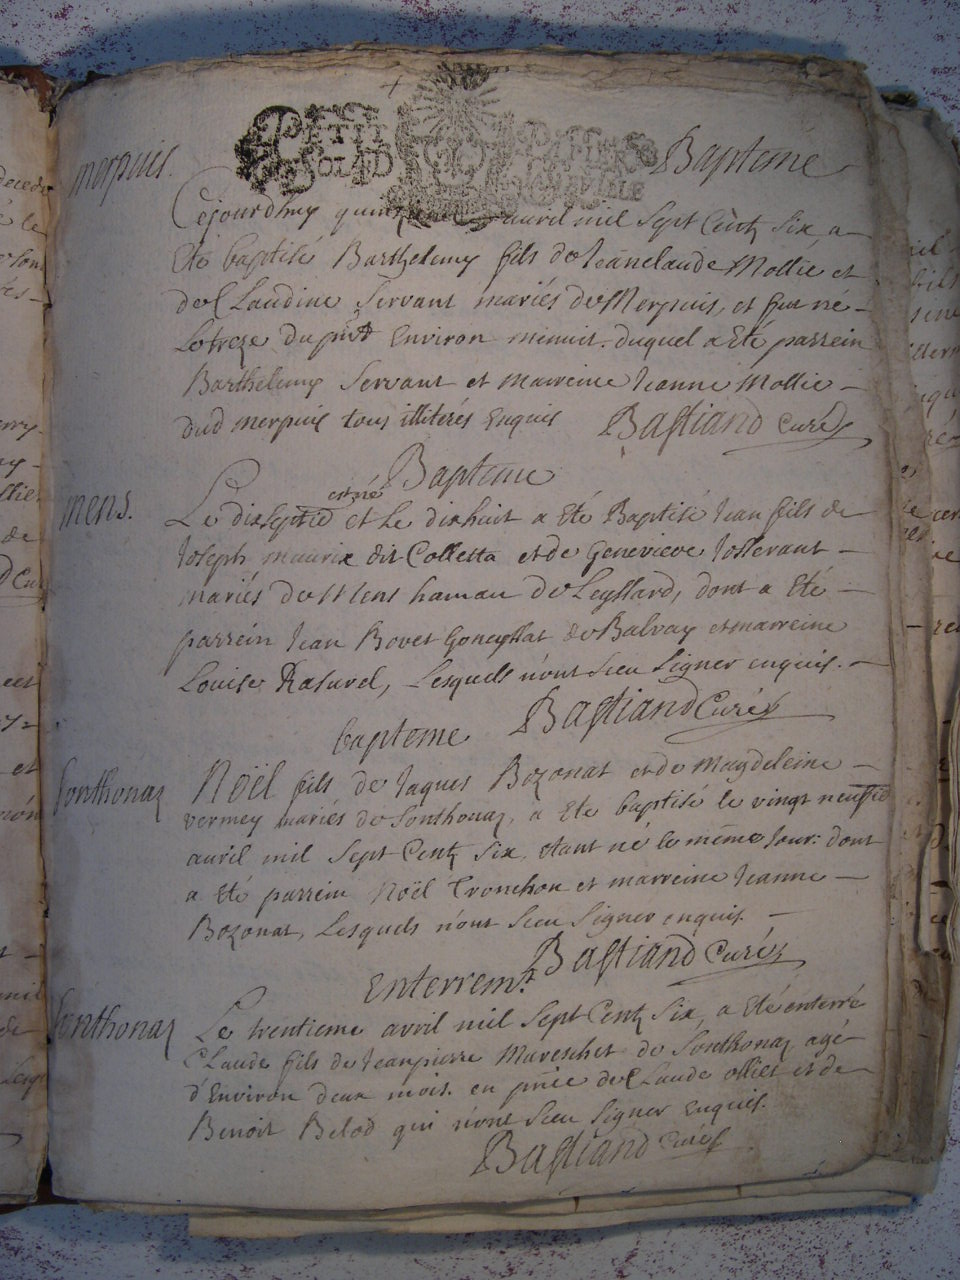 merpuis.
Bapteme
Cejourdhuy avril mil sept Centz six, a
Eté baptisé Barthelemy fils de Jeanclaude Mollie et
de Claudine Servant mariés de Merpuis, et fut né
Letreze du pnt Environ minuit. duquel a Eté parrein
Barthelemy Servant et marreine Jeanne Mollie
dud merpuis tous illiterés Enquis Bastiand Curé
Bapteme
mens.
est né
Le dixseptie et Le dixhuit a Eté Baptisé Jean fils de
Joseph maurix dit Colletta et de Genevieve Josserant
mariés de Mens hamau de Leyssard, dont a Eté
parrein Jean Bovet Goneyssat de Balvay et marreine
Louise Raturel, Lesquels n'ont sceu signer enquis.
Bastiand Curé
bapteme
Sonthonaz
Noël fils de Jaques Bozonat et de Magdeleine
vermey mariés de Sonthonaz, a Eté baptisé le vingt neufie
avril mil sept Centz six, etant né le même Jour: dont
a Eté parrein Noël Tronchon et marreine Jeanne
Bozonat, Lesquels n'ont sceu signer enquis.
Bastiand Curé
Enterremt
Sonthonaz
Le trentieme avril mil sept Centz six, a Eté enterré
Claude fils de Jeanpierre Mareschet de Sonthonaz agé
d'Environ deux mois. en pnce de Claude ollier et de
Benoit Belod qui n'ont sceu signer Enquis.
Bastiand Curé